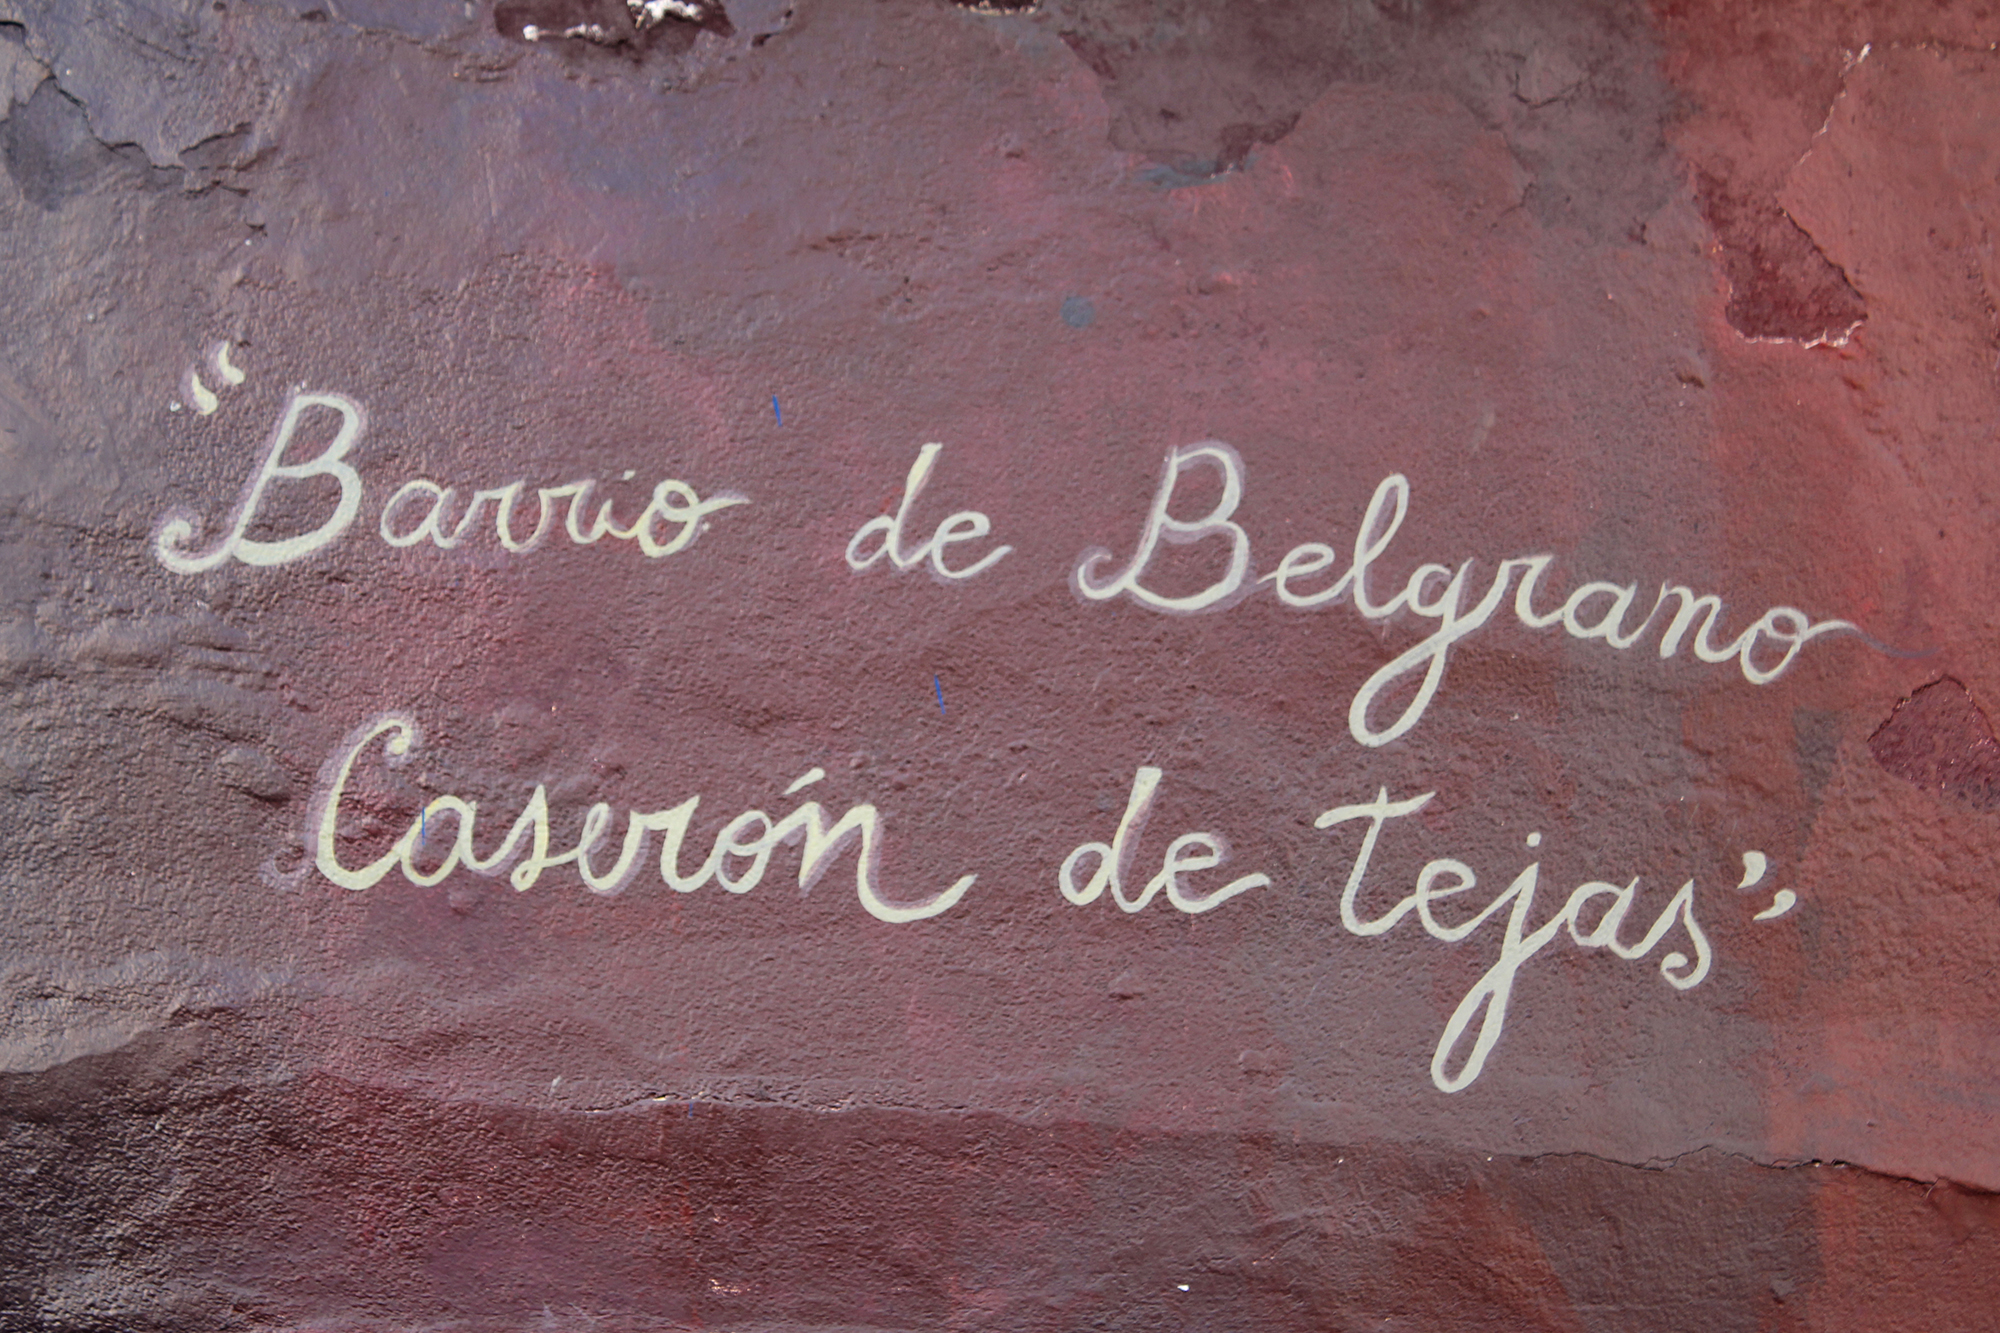 “Barrio de Belgrano
Caserón de tejas”